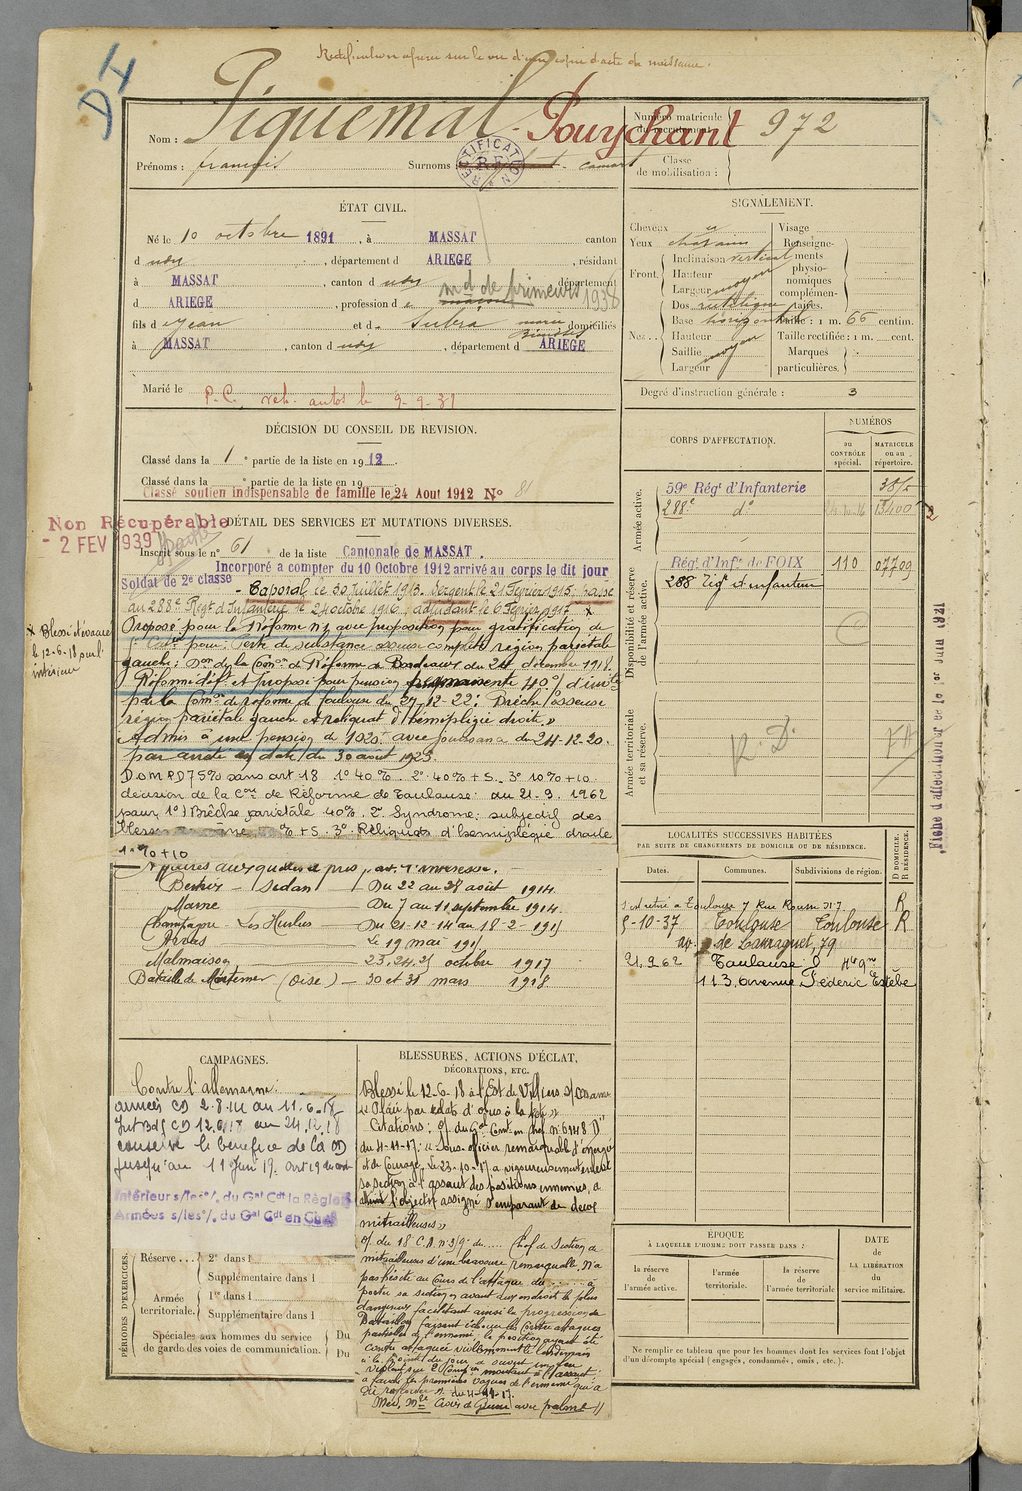 Rectification opérée sur le vu d'une copie d'acte de naissance.
D4
Nom : Piquemal - Pouychant
Prénoms : françois Surnoms : camart
RECTIFICATION
Numéro matricule
du recrutement : 972
Classe
de mobilisation :
ÉTAT CIVIL.
Né le 10 octobre 1891, à MASSAT canton
d udit, département d ARIEGE, résidant
à MASSAT, canton d udit département
d ARIEGE, profession d e maçon md de primeurs 1936
fils d e Jean et d e Subra marie domiciliés
à MASSAT, canton d udit, département d ARIEGE
Marié le
P.C. veh. autos le 9-9-31
SIGNALEMENT.
Cheveux
Yeux chatains
Front. Inclinaison vertical
Hauteur moyen
Largeur moyen
Nez Dos rectiligne
Base horizontal
Hauteur moyen
Saillie moyen
Largeur
Visage
Renseignements
physionomiques
complémentaires.
Taille : 1 m. 66 centim.
Taille rectifiée : 1 m. cent.
Marques
particulières.
Degré d'instruction générale : 3
DÉCISION DU CONSEIL DE REVISION.
Classé dans la 1e partie de la liste en 1912.
Classé dans la e partie de la liste en 19
Classé soutien indispensable de famille le 24 Aout 1912 No 81
Non Récupérable
- 2 FEV 1939
DÉTAIL DES SERVICES ET MUTATIONS DIVERSES.
Inscrit sous le n° 61 de la liste Cantonale de MASSAT.
Incorporé a compter du 10 Octobre 1912 arrivé au corps le dit jour
Soldat de 2e classe - Caporal le 30 Juillet 1913. Sergent le 21 Février 1915. Passé
au 288e Régt d'Infanterie le 24 octobre 1916, adjudant le 6 Février 1917 x
x Blessé évacué
le 12-6-18 sur l'
intérieur
Proposé pour la Réforme n°1 avec proposition pour gratification de
pour : Perte de substance osseuse complète région pariétale
gauche ; Don de la Comon de Réforme de Bordeaux du 24 décembre 1918.
Réformé déft et proposé pour pension permanente 40% d'invté
par la Comon de réforme de Toulouse du 27-12-22 : Brèche osseuse
région pariétale gauche et reliquat d'hémiplégie droite. »
Admis à une pension de 1020f avec jouissance du 24-12-20.
par arrêté en date du 30 août 1923.
D.O.M.P.D 75% sans art. 18 1° 40%. 2° 40% + 5. 3° 10% + 10.
décision de la Con de Réforme de Toulouse du 21. 9. 1962
pour 1°) Brêche pariétale 40%. 2° Syndrome subjectif des
+ 5. 3° Reliquats d'hémiplégie droite
10% + 10
Affaires auxquelles a pris part l'intéressé.
Bertrix - Sedan - Du 22 au 28 août 1914.
Marne - Du 7 au 11 septembre 1914.
Champagne - Les Hurlus - Du 21-12-14 au 18-2-1915
Arras - Le 19 mai 1915
Malmaison - 23, 24, 25 octobre 1917
Bataille de Mortemer (Oise) - 30 et 31 mars 1918
CORPS D'AFFECTATION.
NUMÉROS
au
CONTRÔLE
spécial.
MATRICULE
ou au
répertoire.
Armée active.
59e Régt d'Infanterie
288e do 24-10-16 13400
Disponibilité et réserve
de l'armée active.
Régt d'Infie de FOIX 110 07709
288 Régt d'infanterie
Armée territoriale
et sa réserve.
R. D.
LOCALITÉS SUCCESSIVES HABITÉES
PAR SUITE DE CHANGEMENTS DE DOMICILE OU DE RÉSIDENCE.
Dates. Communes. Subdivisions de région. D DOMICILE. R RÉSIDENCE.
Toulouse 7 Rue Rouan R
5-10-37 Toulouse Toulouse R
av. de Lauraguet, 79
21.9.62 Toulouse Hte Gne
113, avenue Féderic Estèbe
CAMPAGNES.
Contre l'allemagne :
armées CD 2.8.14 au 11-6-18
Int Bdg CD 12.6.18 au 24.12.18
conserve le bénéfice de la CD
jusqu'au 11 Juin 19.
Intérieur s/les o/. du Gal Cdt la Région
Armées s/les o/. du Gal Cdt en Chef
BLESSURES, ACTIONS D'ÉCLAT,
DÉCORATIONS, ETC.
Blessé le 12-6-18 à l'Est de Villers s/Coudun
« Plaie par éclats d'obus à la tête »
Citations : O/ du Gal Comt en chef n° 6148 "D"
du 4-11-17 : « Sous-officier remarquable d'énergie
et de courage. Le 23-10-17 a vigoureusement enlevé
sa section à l'assaut des positions ennemies, a
atteint l'objectif assigné s'emparant de deux
mitrailleuses »
O/ du 18 C.A. n° 319 du ..... Chef de Section de
mitrailleuses d'une bravoure remarquable. N'a
pas hésité au cours de l'attaque du ....... à
porter sa section avant du endroit le plus
dangereux facilitant ainsi la progression du
Bataillon faisant échouer les contre attaques
partielles de l'ennemi, la position ayant été
contre attaquée violemment le lendemain
à la pointe du jour a ouvert un feu
violent
a fauché les premières vagues de l'ennemi qui a
dû refluer
Méd. Mre Croix de Guerre avec palme //
PÉRIODES D'EXERCICES.
Réserve 2e dans l
Supplémentaire dans l
Armée
territoriale. 1re dans l
Supplémentaire dans l
Spéciales aux hommes du service
de garde des voies de communication. Du
Du
ÉPOQUE
À LAQUELLE L'HOMME DOIT PASSER DANS :
la réserve
de
l'armée active.
l'armée
territoriale.
la réserve
de
l'armée territoriale
DATE
de
LA LIBÉRATION
du
service militaire.
Ne remplir ce tableau que pour les hommes dont les services font l'objet
d'un décompte spécial (engagés, condamnés, omis, etc.).